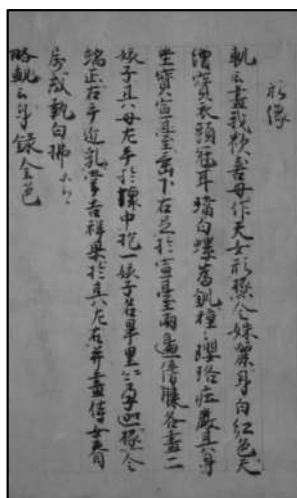 形像
軌云畫我歡喜母作天女形極令姝麗身白紅色天
繒寶衣頭冠耳璫白螺為釧種々瓔珞莊嚴其身
坐寶宣臺垂下右足於宣臺兩邊傍膝各畫二
孩子其母左手於懷中抱一孩子名畢里二合孕迦極令
端正右手近乳掌吉祥菓於其左右并畫侍女眷
屬或執白拂云々
略軌云身録金色